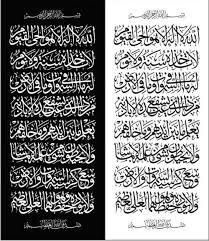 الله لا إله إلا هو الحي القيوم
لا تأخذه سنة ولا نوم
له ما في السموات وما في الأرض
من ذا الذي يشفع عنده إلا بإذنه
يعلم ما بين أيديهم وما خلفهم
ولا يحيطون بشيء من علمه إلا بما شاء
وسع كرسيه السموات والأرض
ولا يؤده حفظهما وهو العلي العظيم
الله لا إله إلا هو الحي القيوم
لا تأخذه سنة ولا نوم
له ما في السموات وما في الأرض
من ذا الذي يشفع عنده إلا بإذنه
يعلم ما بين أيديهم وما خلفهم
ولا يحيطون بشيء من علمه إلا بما شاء
وسع كرسيه السموات والأرض
ولا يؤده حفظهما وهو العلي العظيم